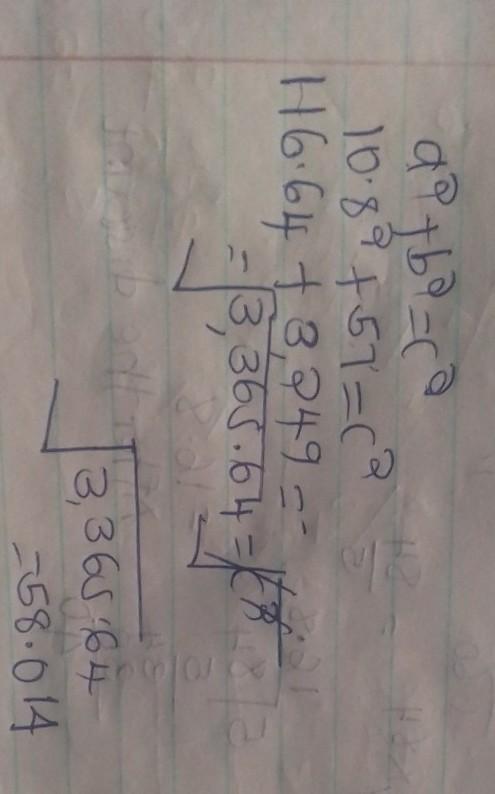 a²+b²=c²
10.8²+57=c²
116.64 + 3,249 =
=√3,365.64=√c²
√3,365.64
=58.014